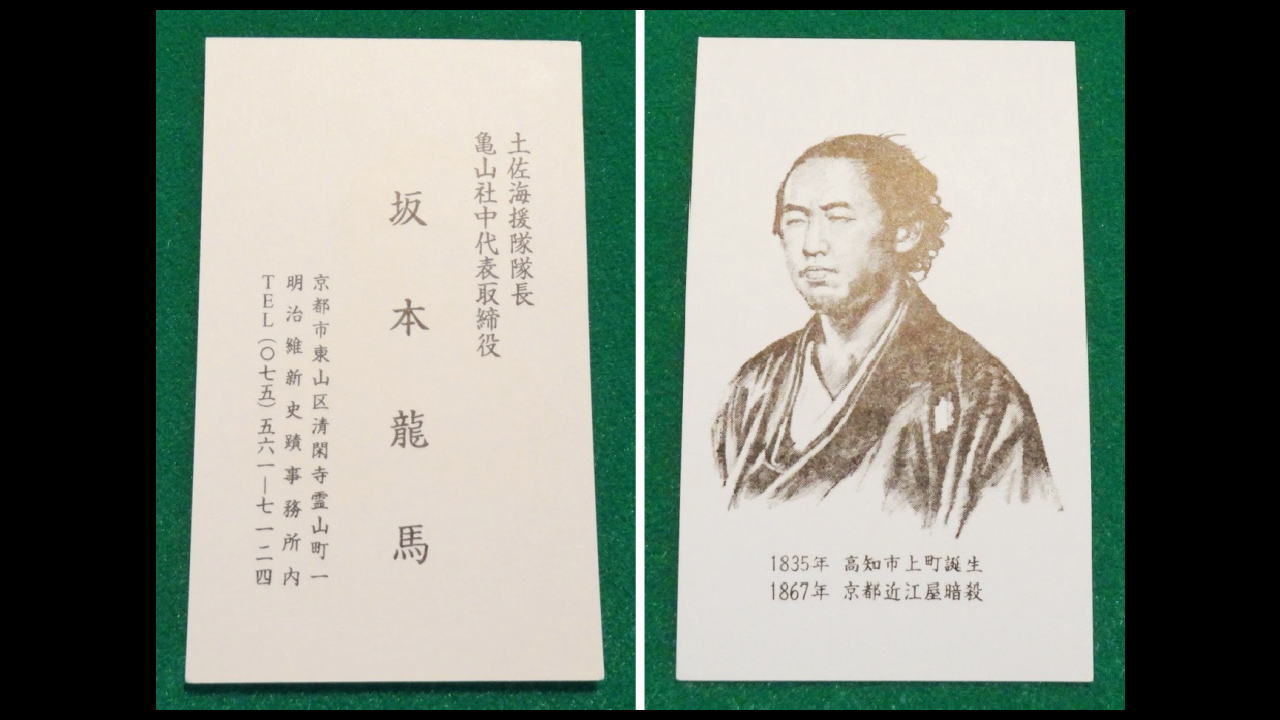 土佐海援隊隊長
亀山社中代表取締役
坂本龍馬
京都市東山区清閑寺霊山町一
明治維新史蹟事務所内
TEL(〇七五)五六一―七一二四
1835年 高知市上町誕生
1867年 京都近江屋暗殺